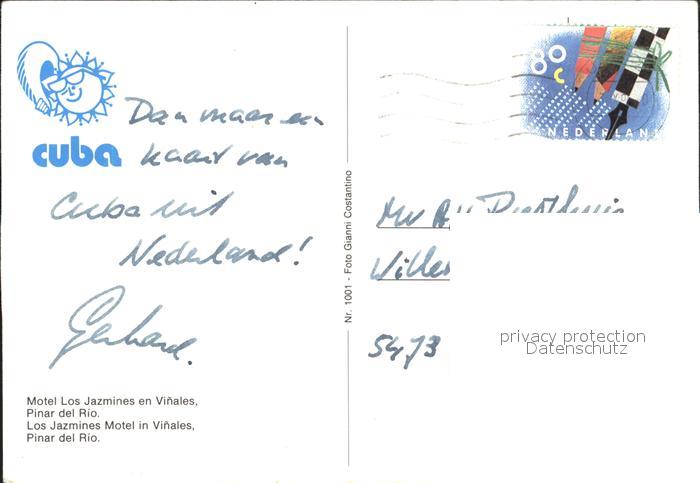 cuba
Dan maar een
kaart van
Cuba uit
Nederland!
Gerhard.
Motel Los Jazmines en Viñales,
Pinar del Río.
Los Jazmines Motel in Viñales,
Pinar del Río.
Nr. 1001 - Foto Gianni Costantino
80 c
NEDERLAN
Mv A
5473
privacy protection
Datenschutz